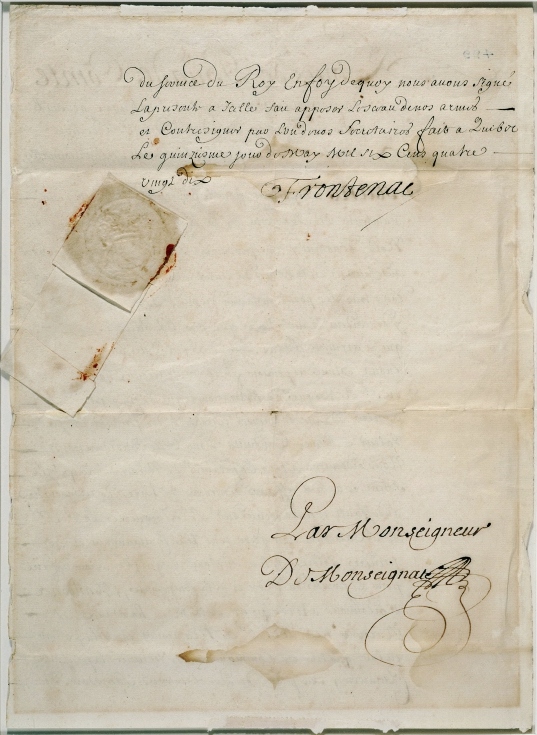 du service du Roy En foy de quoy nous avons signé
La presente a Icelle fau apposer Le sceau de nos armes
et Contresigner par L'un de nos Secretaires fait a Quebec
Le quinziesme jour de May Mil six Cens quatre
vingt dix Frontenac
Par Monseigneur
De Monseignat